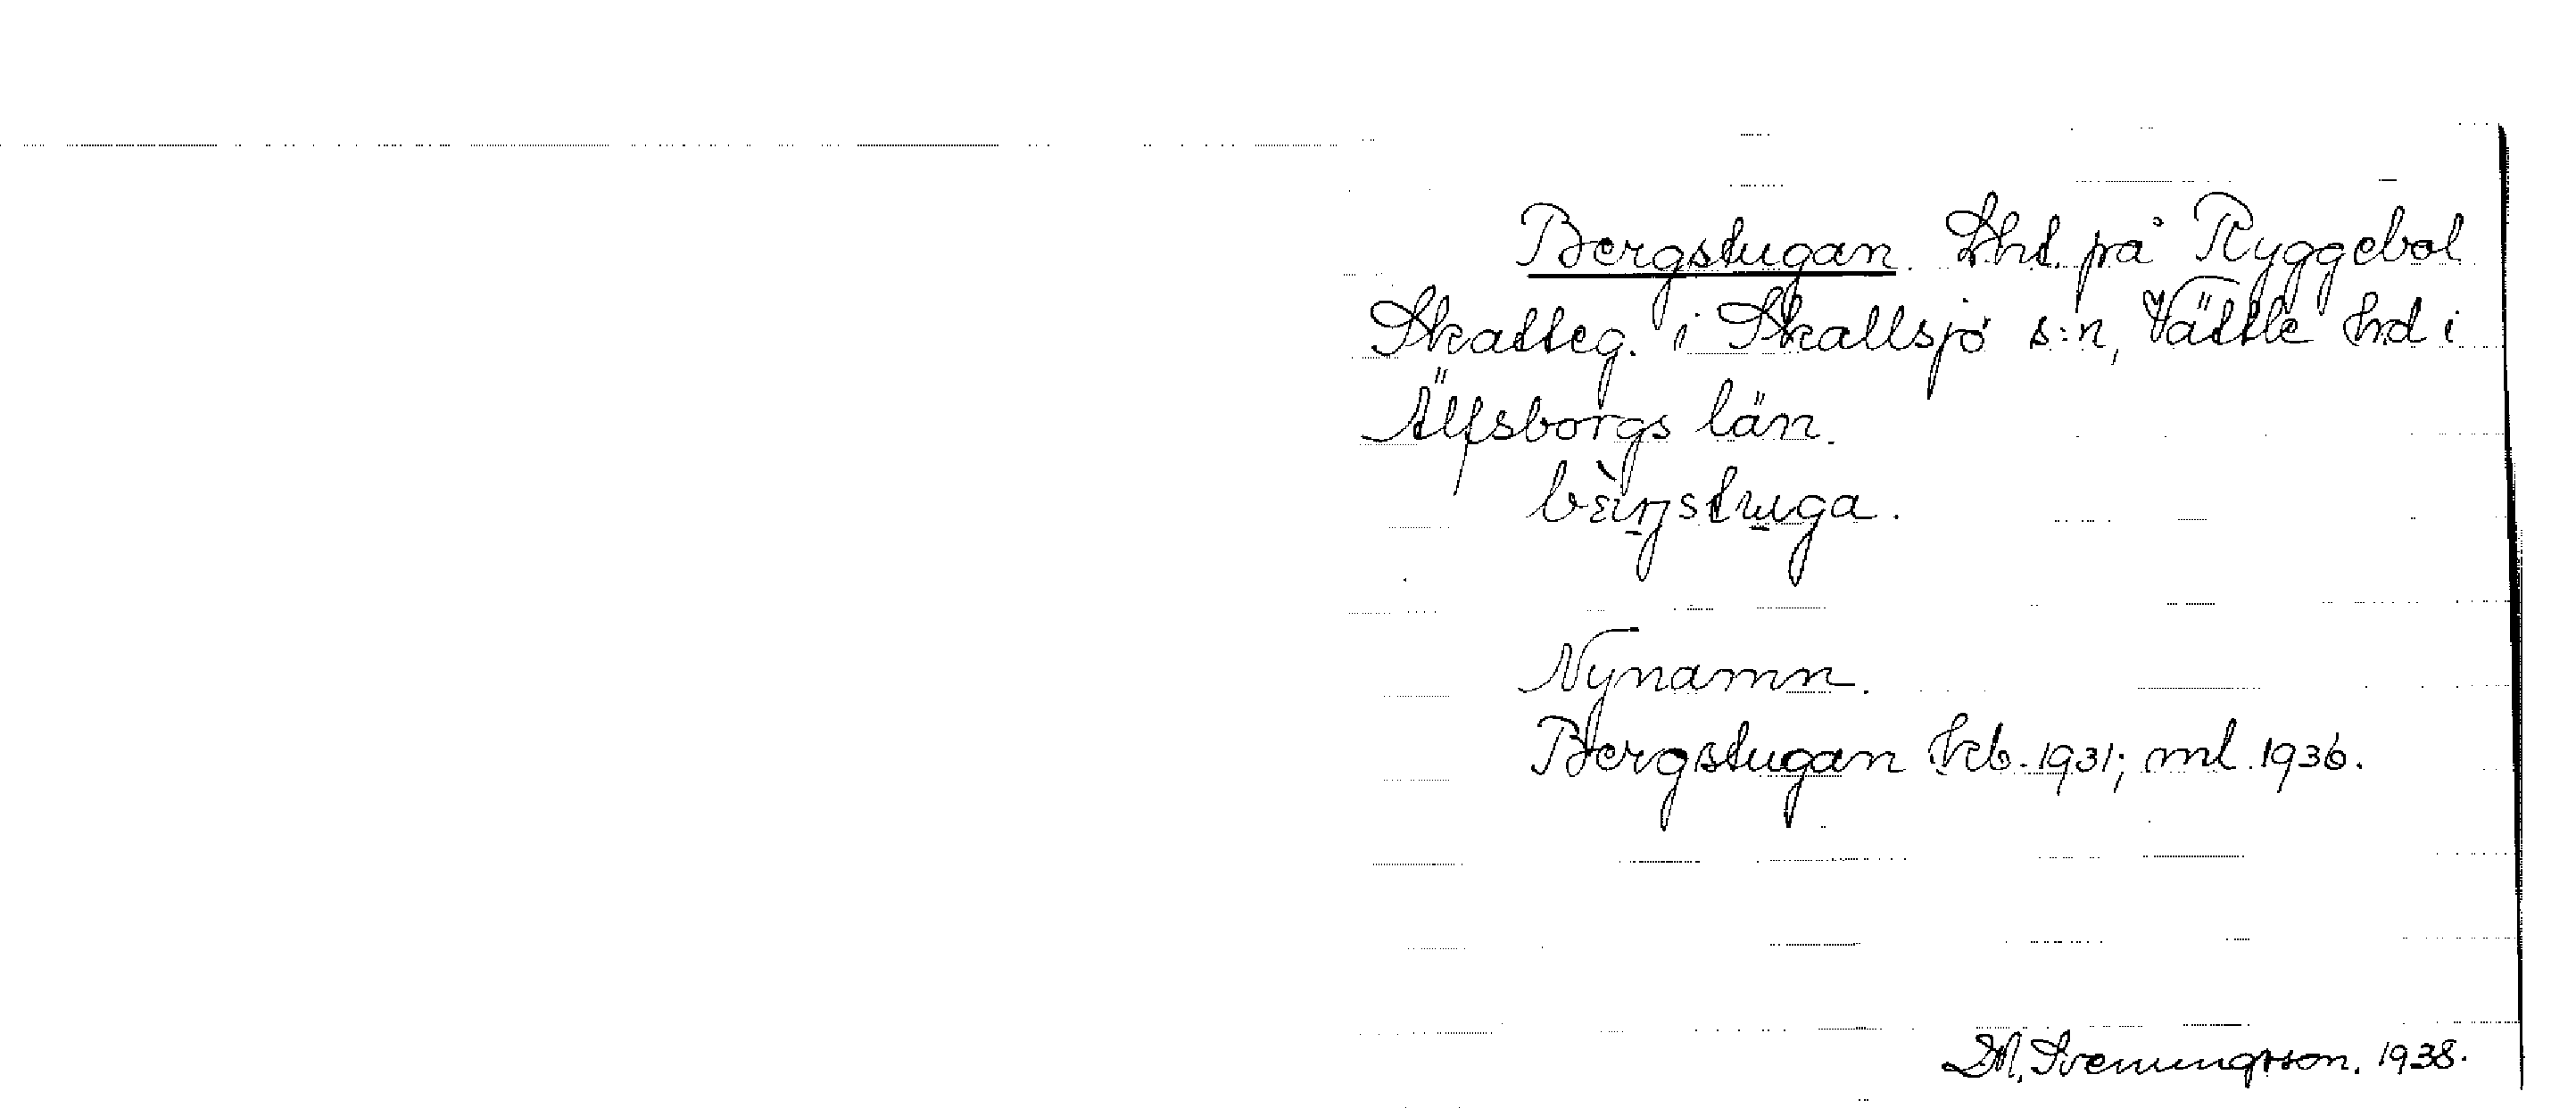 Bergstugan. Lht. på Ryggebol
Skatteg. i Skallsjö s:n, Vättle hd i
Älfsborgs län.
bèŋstuga.
Nynamn.
Bergstugan kb. 1931; ml. 1936.
Sveningsson. 1938.